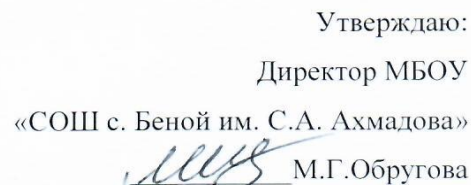 Утверждаю:
Директор МБОУ
«СОШ с. Беной им. С.А. Ахмадова»
М.Г.Обругова